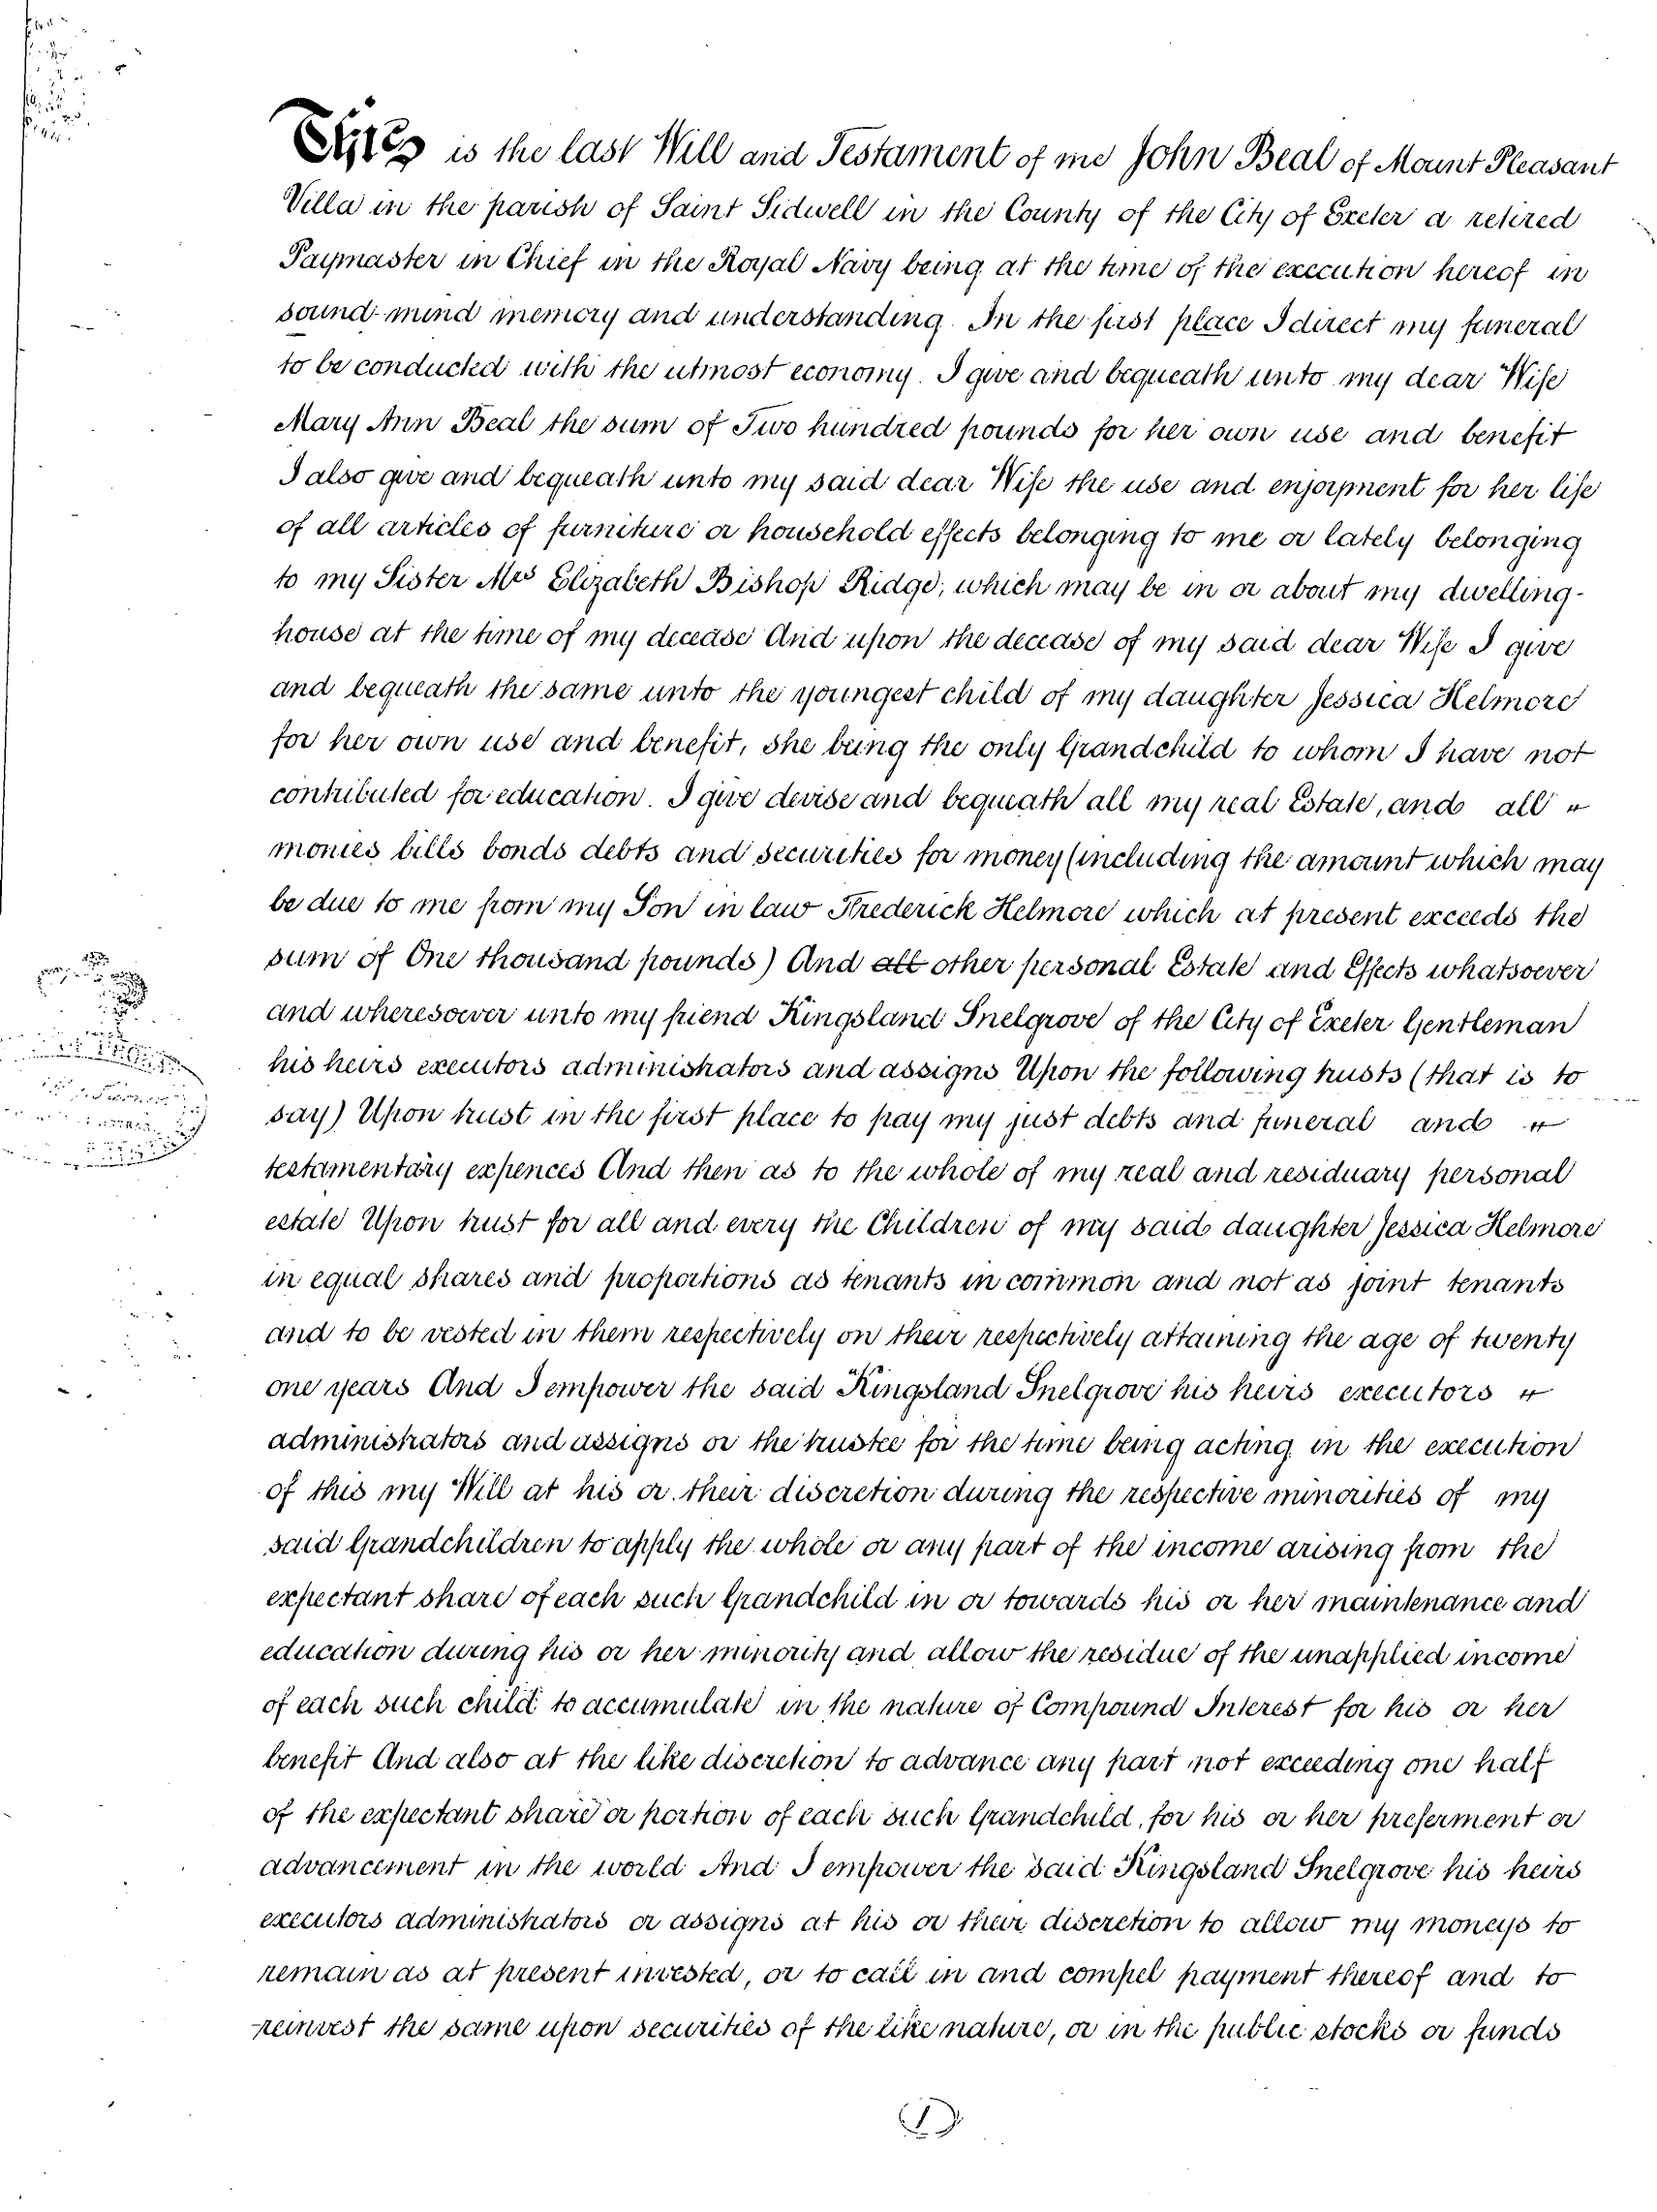 This is the last Will and Testament of me John Beal of Mount Pleasant
Villa in the parish of Saint Sidwell in the County of the City of Exeter a retired
Paymaster in Chief in the Royal Navy being at the time of the execution hereof in
sound mind memory and understanding. In the first place I direct my funeral
to be conducted with the utmost economy. I give and bequeath unto my dear Wife
Mary Ann Beal the sum of Two hundred pounds for her own use and benefit
I also give and bequeath unto my said dear Wife the use and enjoyment for her life
of all articles of furniture or household effects belonging to me or lately belonging
to my Sister Mrs Elizabeth Bishop Ridge, which may be in or about my dwelling-
house at the time of my decease And upon the decease of my said dear Wife I give
and bequeath the same unto the youngest child of my daughter Jessica Helmore
for her own use and benefit, she being the only Grandchild to whom I have not
contributed for education. I give devise and bequeath all my real Estate, and all
monies bills bonds debts and securities for money (including the amount which may
be due to me from my Son in law Frederick Helmore which at present exceeds the
sum of One thousand pounds) And all other personal Estate and Effects whatsoever
and wheresoever unto my friend Kingsland Snelgrove of the City of Exeter Gentleman
his heirs executors administrators and assigns Upon the following trusts (that is to
say) Upon trust in the first place to pay my just debts and funeral and
testamentary expences And then as to the whole of my real and residuary personal
estate Upon trust for all and every the Children of my said daughter Jessica Helmore
in equal shares and proportions as tenants in common and not as joint tenants
and to be vested in them respectively on their respectively attaining the age of twenty
one years And I empower the said Kingsland Snelgrove his heirs executors
administrators and assigns or the trustee for the time being acting in the execution
of this my Will at his or their discretion during the respective minorities of my
said Grandchildren to apply the whole or any part of the income arising from the
expectant share of each such Grandchild in or towards his or her maintenance and
education during his or her minority and allow the residue of the unapplied income
of each such child to accumulate in the nature of Compound Interest for his or her
benefit And also at the like discretion to advance any part not exceeding one half
of the expectant share or portion of each such Grandchild, for his or her preferment or
advancement in the world And I empower the said Kingsland Snelgrove his heirs
executors administrators or assigns at his or their discretion to allow my moneys to
remain as at present invested, or to call in and compel payment thereof and to
reinvest the same upon securities of the like nature, or in the public stocks or funds
1